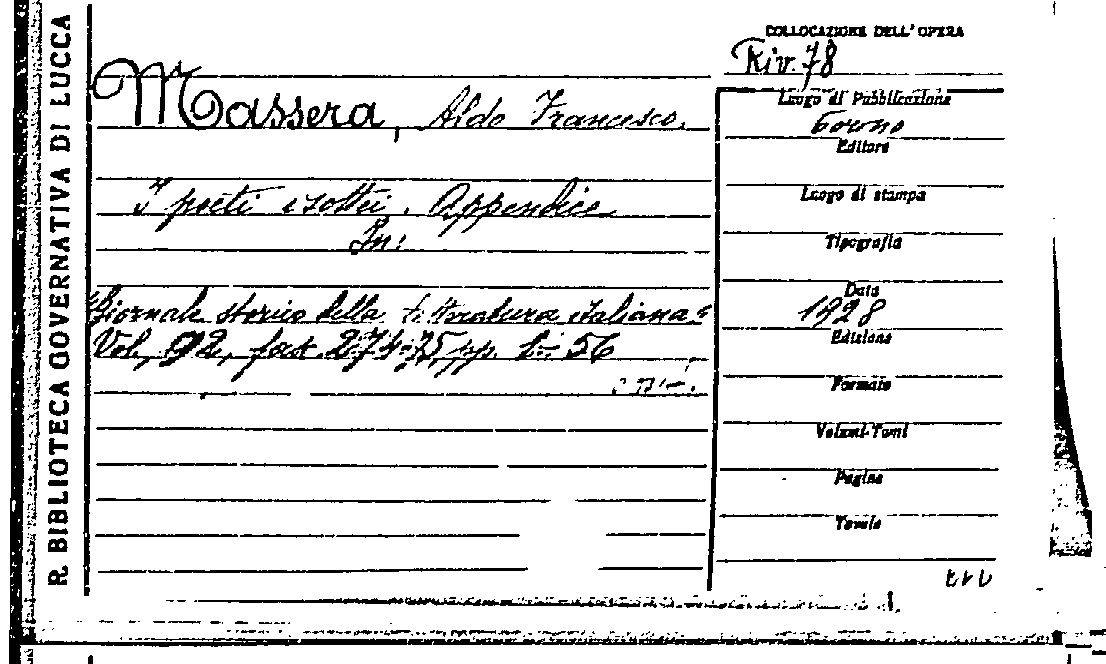 R. BIBLIOTECA GOVERNATIVA DI LUCCA
COLLOCAZIONE DELL'OPERA
Riv. 78
Massera, Aldo Francesco.
I poeti isottei. Appendice
In:
"Giornale storico della letteratura italiana"
Vol. 92, fasc. 274-75, pp. 1-56
Luogo di Pubblicazione
Torino
Editore
Luogo di stampa
Tipografia
Data
1928
Edizione
Formato
Volumi-Tomi
Pagine
Tavole